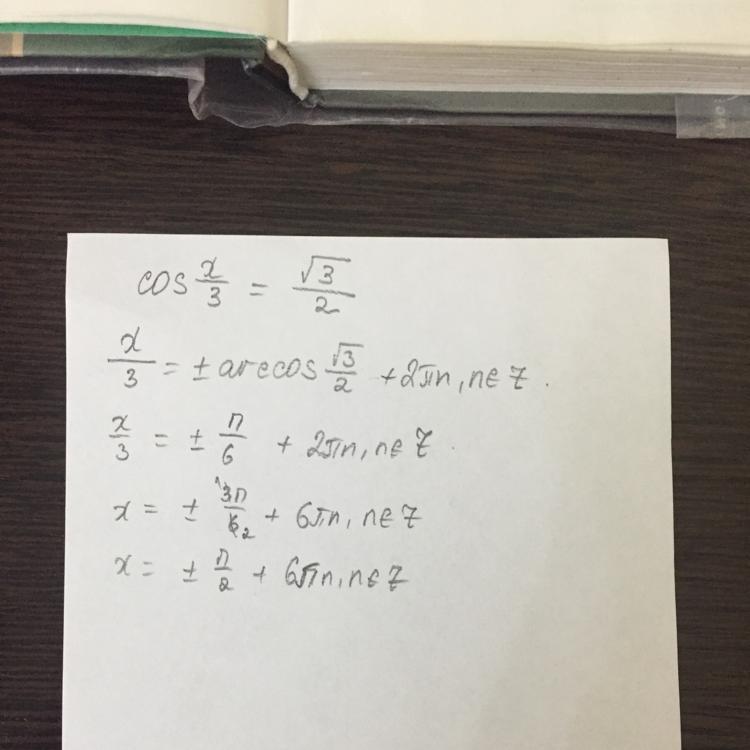 cos x/3 = √3/2
x/3 = ± arccos √3/2 + 2πn, n∈Z.
x/3 = ± π/6 + 2πn, n∈Z.
x = ± 3π/6 2 + 6πn, n∈Z
x = ± π/2 + 6πn, n∈Z